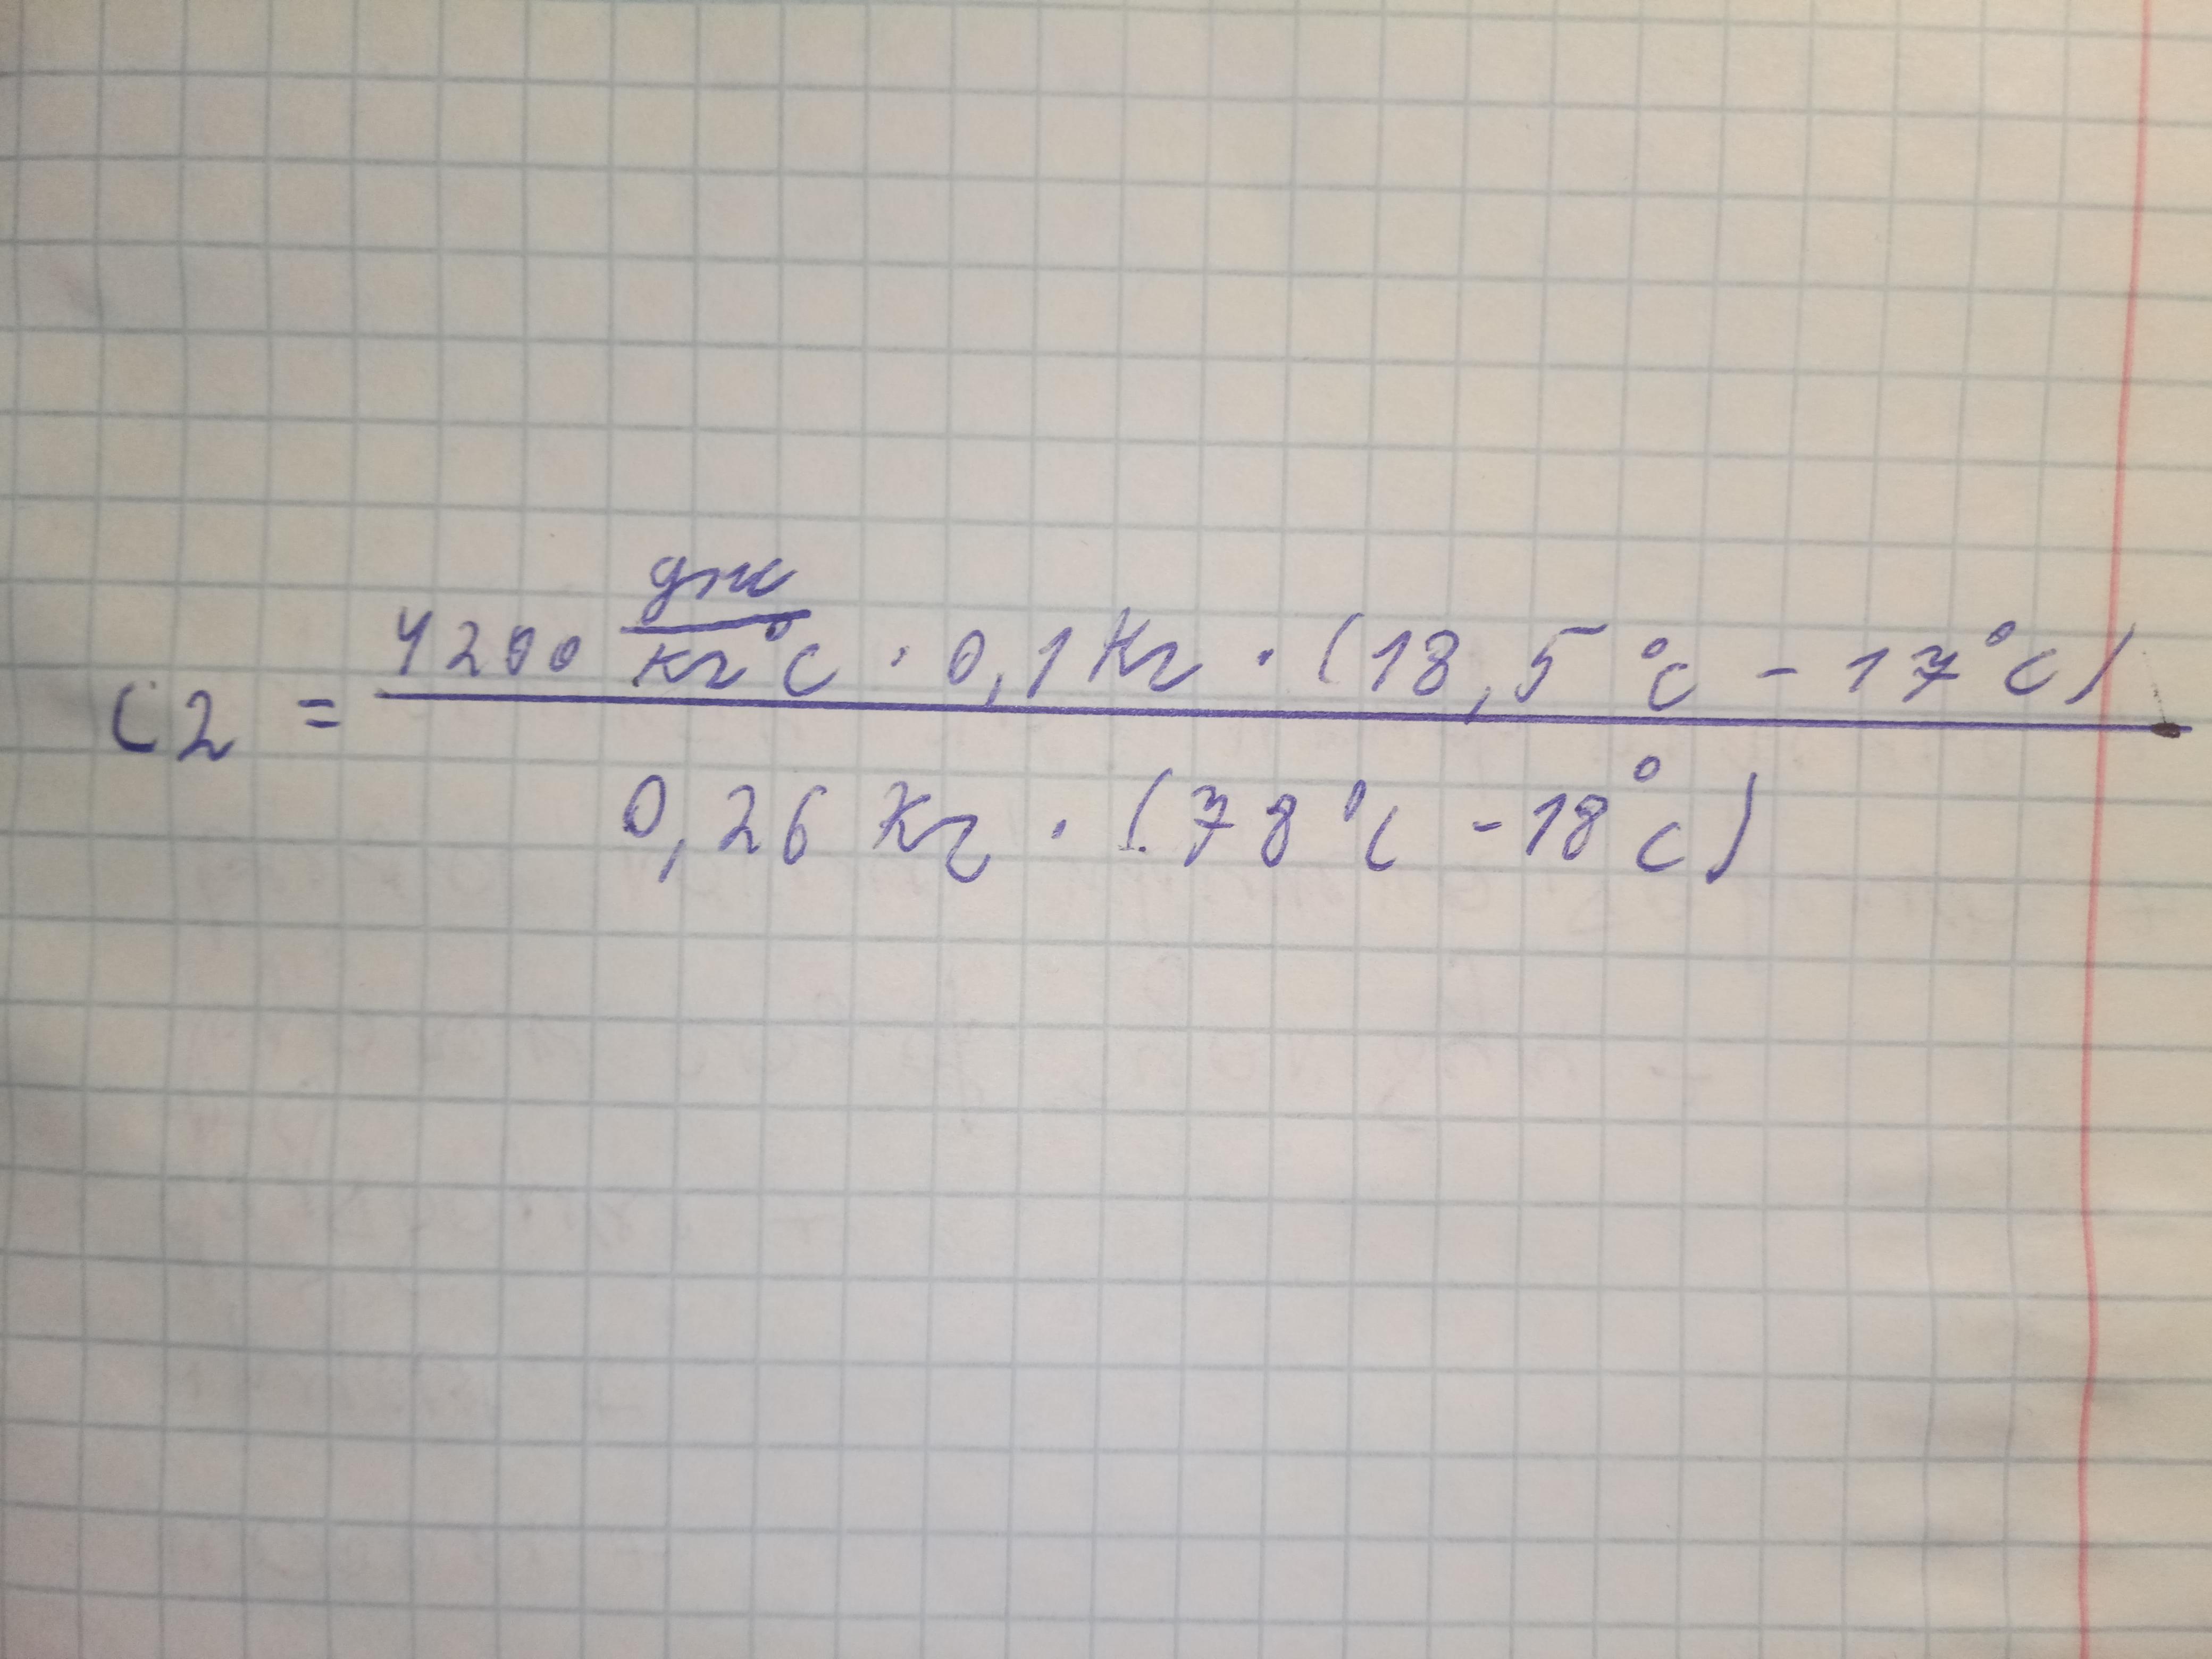 c2 = 4200 дж/кг°C · 0,1 Кг · (18,5 °C - 17°C)
0,26 Кг · (78 °C - 18°C)